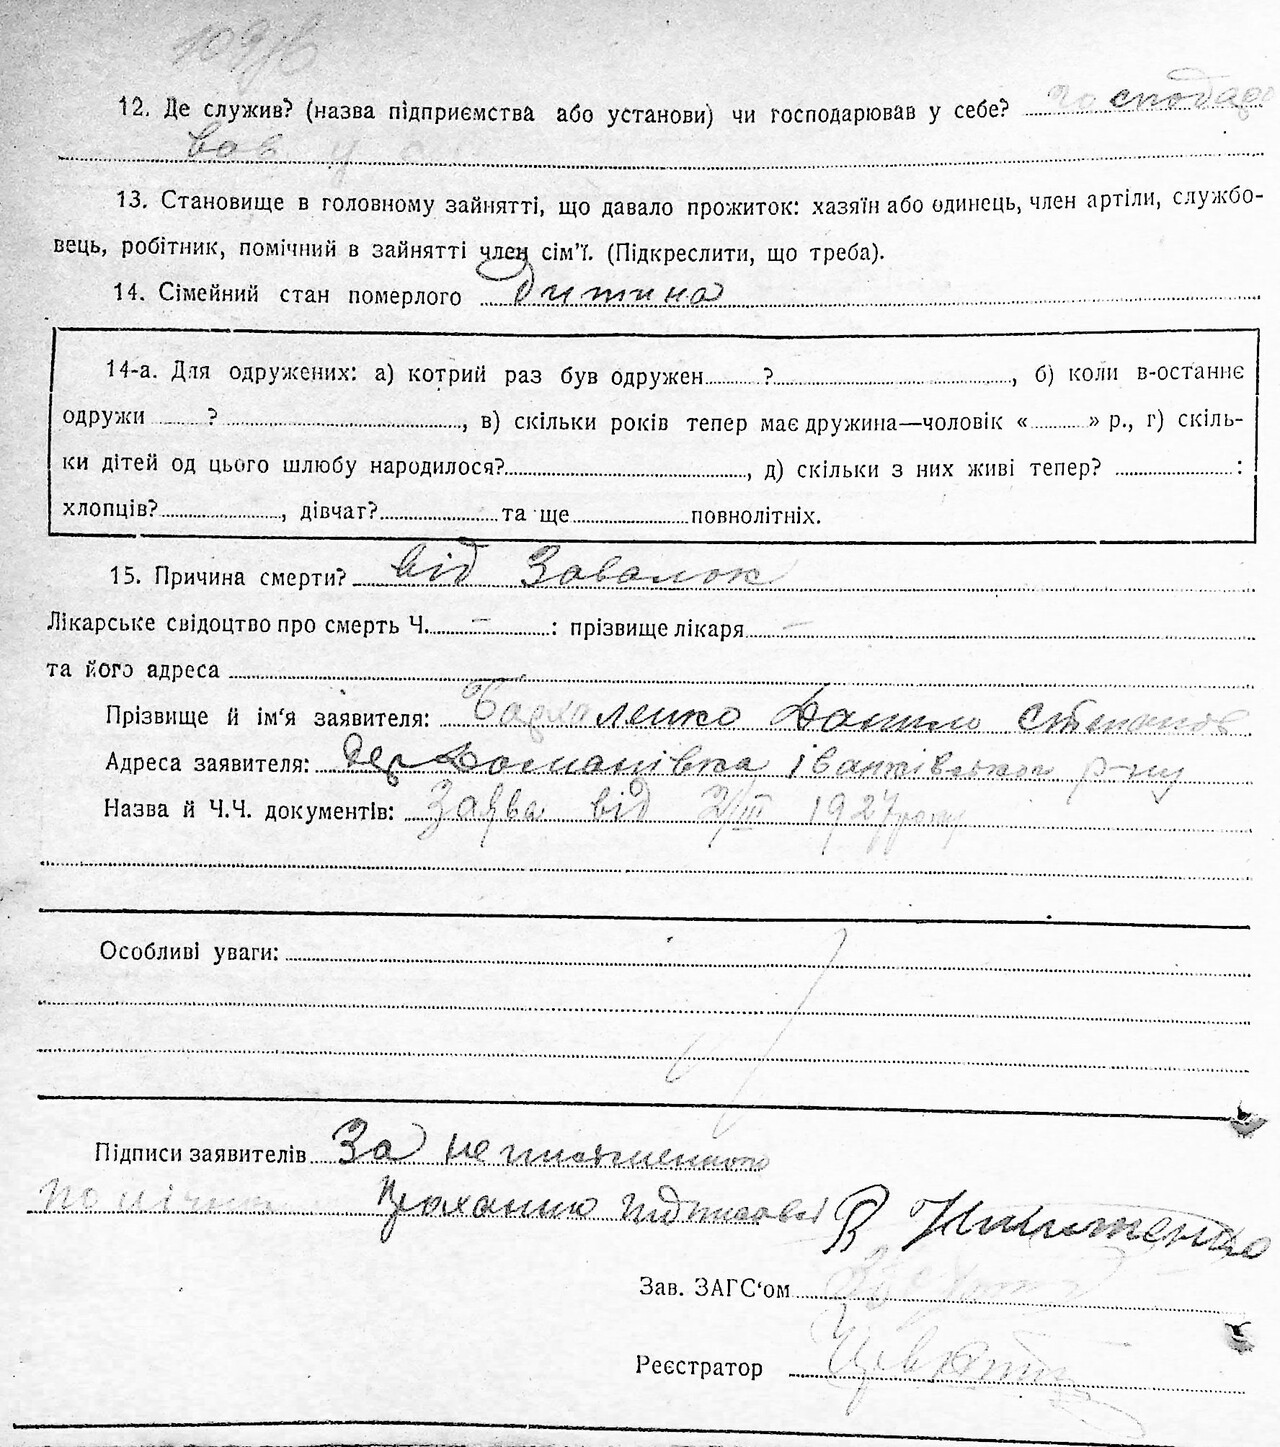 12. Де служив? (назва підприємства або установи) чи господарював у себе? господарю
вав у
13. Становище в головному зайнятті, що давало прожиток: хазяїн або одинець, член артіли, службо-
вець, робітник, помічний в зайнятті член сім'ї. (Підкреслити, що треба).
14. Сімейний стан померлого дитина
14-а. Для одружених: а) котрий раз був одружен ? , б) коли в-останнє
одружи ? , в) скільки років тепер має дружина—чоловік « » р., г) скіль-
ки дітей од цього шлюбу народилося? , д) скільки з них живі тепер? :
хлопців? , дівчат? та ще повнолітніх.
15. Причина смерти? від Завалок
Лікарське свідоцтво про смерть Ч. – : прізвище лікаря –
та його адреса
Прізвище й ім'я заявителя: Данило Степанов
Адреса заявителя: дер Доманівка іванківського р-ну
Назва й Ч.Ч. документів: Заява від 2/III 1927 року
Особливі уваги:
Підписи заявителів За неписьменного
проханню підписавсі В Никоненко
Зав. ЗАГС'ом
Реєстратор